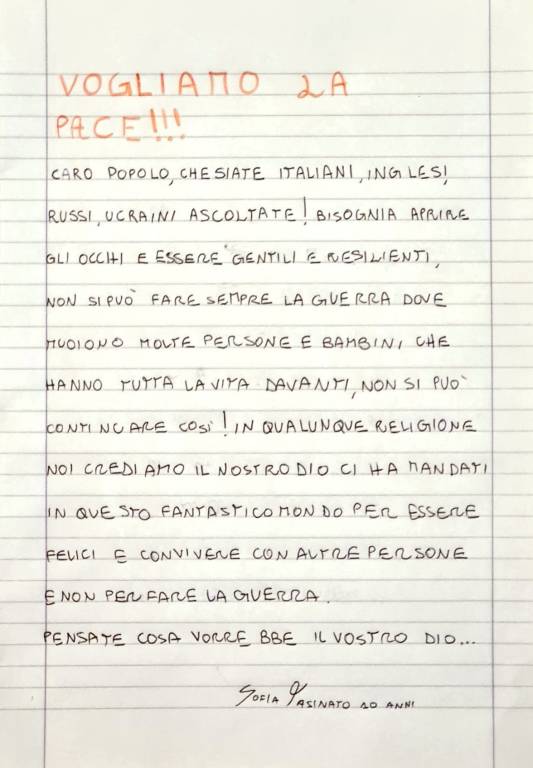 VOGLIAMO LA
PACE!!!
CARO POPOLO, CHE SIATE ITALIANI, INGLESI,
RUSSI, UCRAINI ASCOLTATE! BISOGNIA APRIRE
GLI OCCHI E ESSERE GENTILI E RESILIENTI,
NON SI PUÒ FARE SEMPRE LA GUERRA DOVE
MUOIONO MOLTE PERSONE E BAMBINI, CHE
HANNO TUTTA LA VITA DAVANTI, NON SI PUÒ
CONTINUARE COSÌ! IN QUALUNQUE RELIGIONE
NOI CREDIAMO IL NOSTRO DIO CI HA MANDATI
IN QUESTO FANTASTICO MONDO PER ESSERE
FELICI E CONVIVERE CON ALTRE PERSONE
E NON PER FARE LA GUERRA.
PENSATE COSA VORREBBE IL VOSTRO DIO...
SOFIA PASINATO 10 ANNI